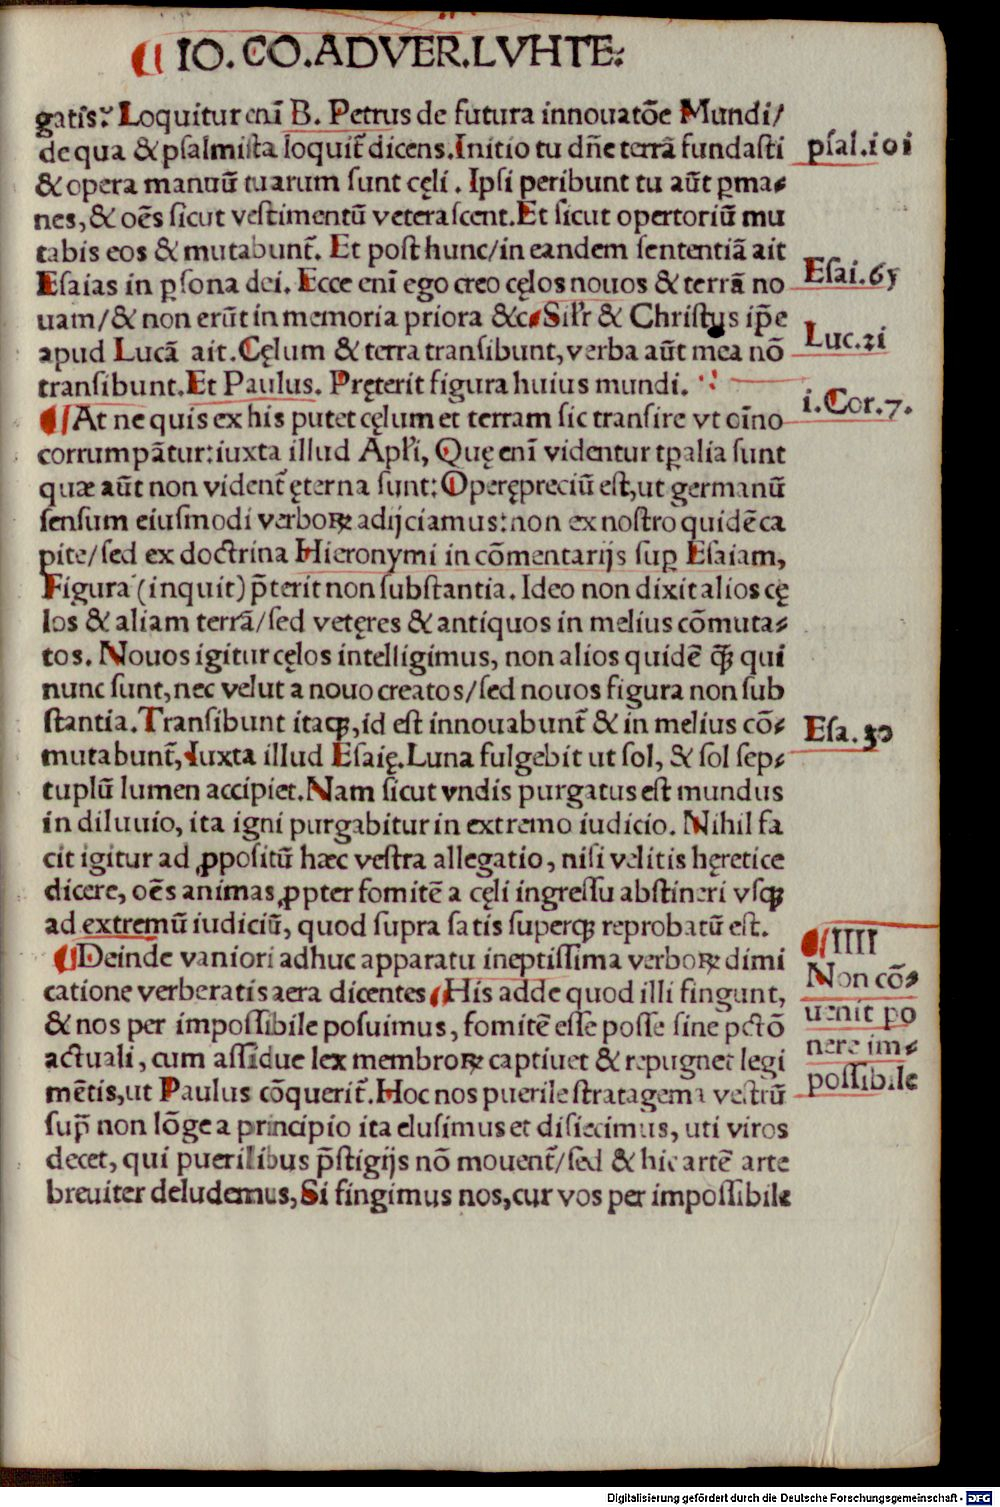 ¶ IO. CO. ADVER. LVHTE:
gatis? Loquitur enī B. Petrus de futura innouatōe Mundi/
de qua & psalmista loquit̃ dicens. Initio tu dñe terrā fundasti
& opera manuū tuarum sunt cęli. Ipsi peribunt tu aūt ꝑma⸗
nes, & oēs sicut vestimentū veterascent. Et sicut opertoriū mu
tabis eos & mutabunt̃. Et post hunc/ in eandem sententiā ait
Esaias in ꝑsona dei. Ecce enī ego creo cęlos nouos & terrā no
uam/ & non erūt in memoria priora &c. Sil̃r & Christus ip̄e
apud Lucā ait. Cęlum & terra transibunt, verba aūt mea nō
transibunt. Et Paulus. Pręterit figura huius mundi.
¶ At ne quis ex his putet cęlum et terram sic transire vt oīno
corrumpātur: iuxta illud Apl̃i, Quę enī videntur tꝑalia sunt
quæ aūt non vident̃ ęterna sunt: Operępreciū est, ut germanū
sensum eiusmodi verboꝝ adijciamus: non ex nostro quidē ca
pite/ sed ex doctrina Hieronymi in cōmentarijs suꝑ Esaiam,
Figura (inquit) p̄terit non substantia. Ideo non dixit alios cę
los & aliam terrā/ sed vetęres & antiquos in melius cōmuta⸗
tos. Nouos igitur cęlos intelligimus, non alios quidē q̄ꝫ qui
nunc sunt, nec velut a nouo creatos/ sed nouos figura non sub
stantia. Transibunt itaqꝫ, id est innouabunt̃ & in melius cō⸗
mutabunt̃, Iuxta illud Esaię. Luna fulgebit ut sol, & sol sep⸗
tuplū lumen accipiet. Nam sicut vndis purgatus est mundus
in diluuio, ita igni purgabitur in extremo iudicio. Nihil fa
cit igitur ad ꝓpositū hæc vestra allegatio, nisi velitis hęretice
dicere, oēs animas ꝓpter fomitē a cęli ingressu abstineri vsqꝫ
ad extremū iudiciū, quod supra satis superqꝫ reprobatū est.
¶ Deinde vaniori adhuc apparatu ineptissima verboꝝ dimi
catione verberatis aera dicentes ¶ His adde quod illi fingunt,
& nos per impossibile posuimus, fomitē esse posse sine pctō
actuali, cum assidue lex membroꝝ captiuet & repugnet legi
mētis, ut Paulus cōquerit̃. Hoc nos puerile stratagema vestrū
sup̄ non lōge a principio ita elusimus et disiecimus, uti viros
decet, qui puerilibus p̄stigijs nō mouent̃/ sed & hic artē arte
breuiter deludemus, Si fingimus nos, cur vos per impossibile
psal. 101
Esai. 65
Luc. 21
1. Cor. 7.
Esa. 30
¶ IIII
Non cō⸗
uenit po
nere im⸗
possibile
Digitalisierung gefördert durch die Deutsche Forschungsgemeinschaft - DFG